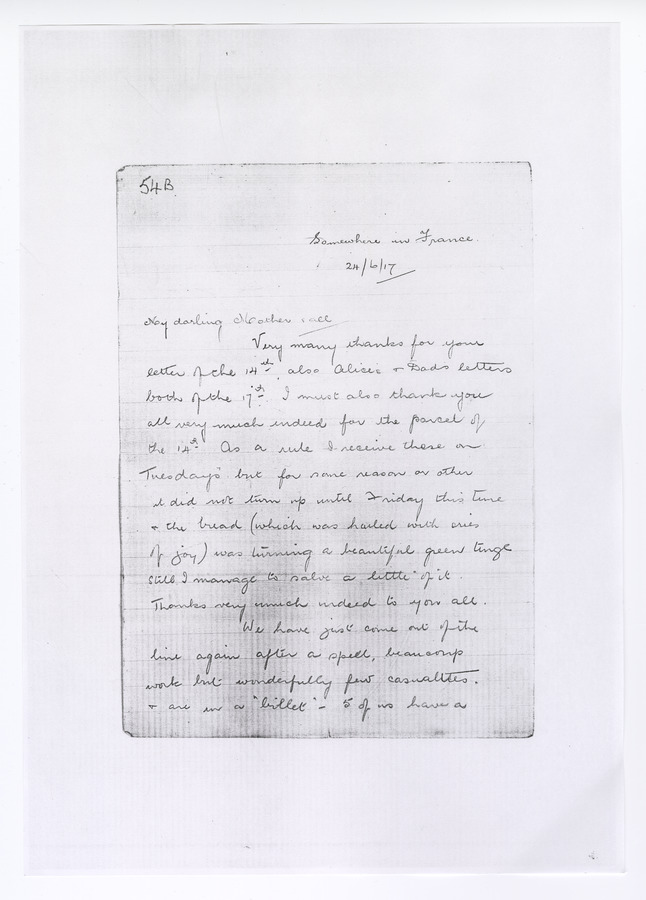 54B.
Somewhere in France.
24/6/17
My darling Mother & all
Very many thanks for your
letter of the 14th, also Alice's & Dads letters
both of the 17th. I must also thank you
all very much indeed for the parcel of
the 14th. As a rule I receive these on
Tuesdays but for some reason or other
it did not turn up until Friday this time
& the bread (which was hailed with cries
of joy) was turning a beautiful green tinge
still I manage to salve a little of it.
Thanks very much indeed to you all.
We have just come out of the
line again after a spell, beaucoup
work but wonderfully few casualties.
& are in a "billet" - 5 of us have a